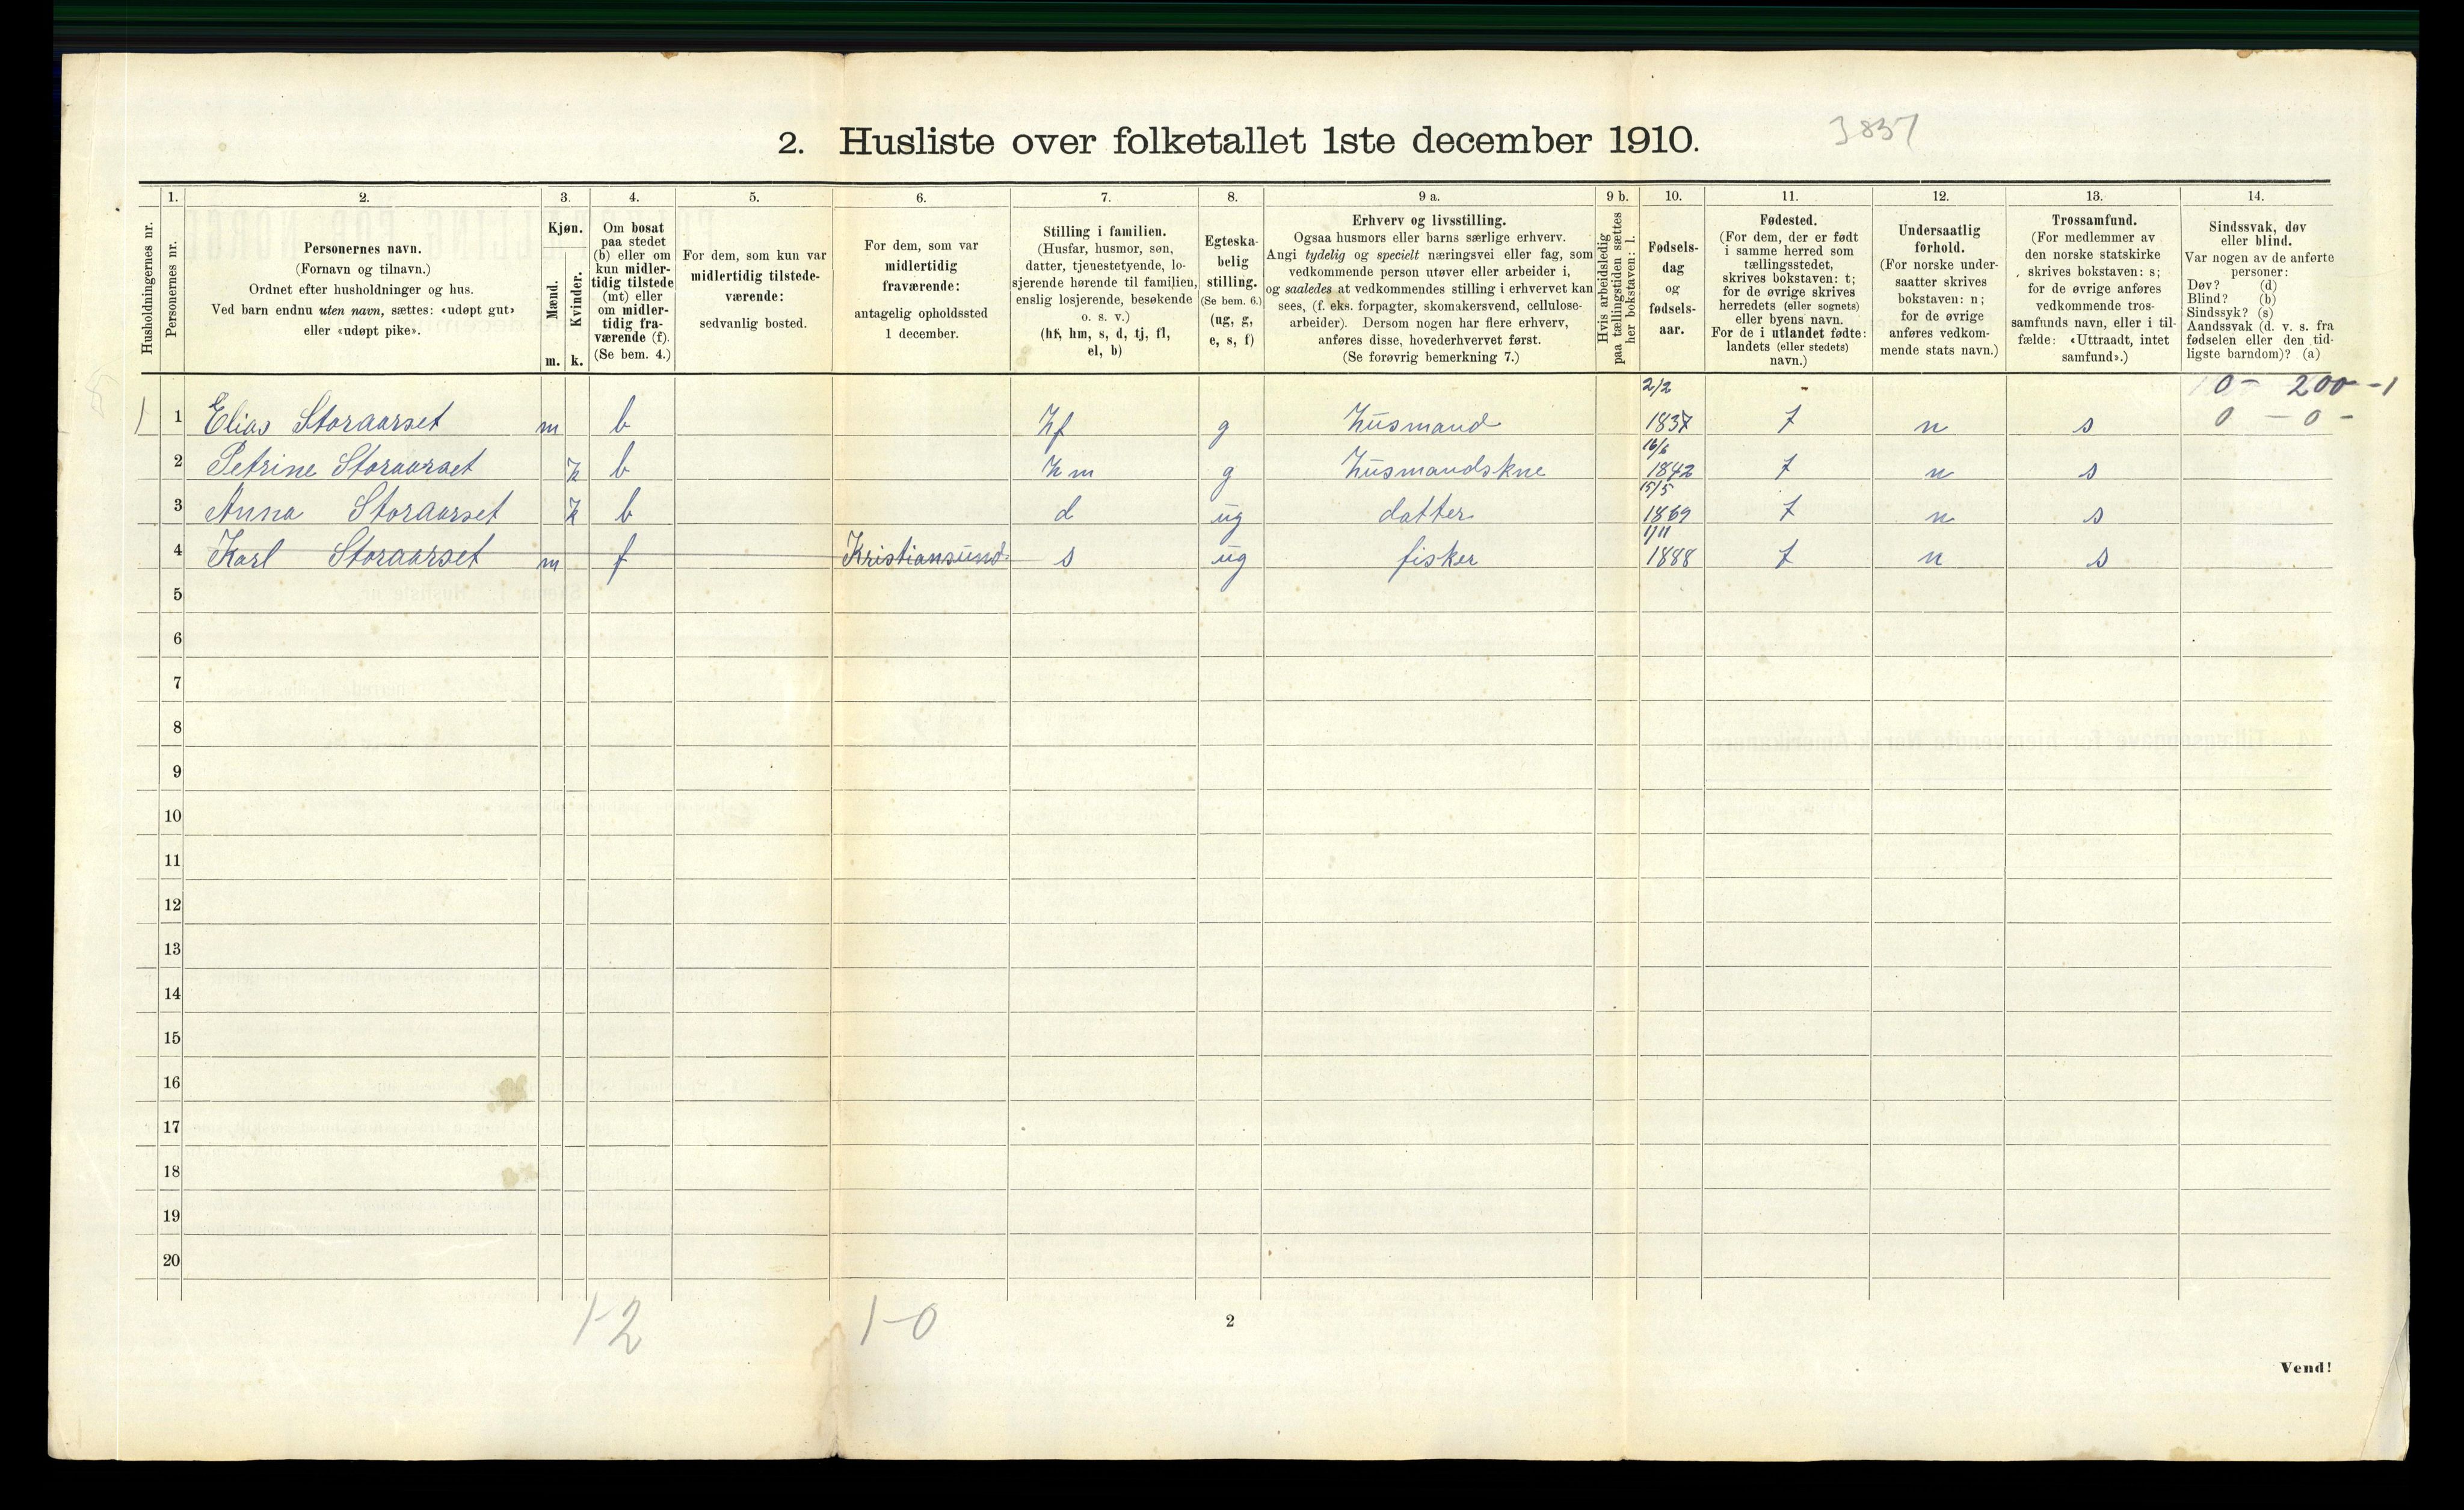 2. Husliste over folketallet 1ste december 1910.
3837
Husholdningernes nr.
1.
Personernes nr.
2.
Personernes navn.
(Fornavn og tilnavn.)
Ordnet efter husholdninger og hus.
Ved barn endnu uten navn, sættes: «udøpt gut»
eller «udøpt pike».
3.
Kjøn.
Mænd.
Kvinder.
m. k.
4.
Om bosat
paa stedet
(b) eller om
kun midler-
tidig tilstede
(mt) eller
om midler-
tidig fra-
værende (f).
(Se bem. 4.)
5.
For dem, som kun var
midlertidig tilstede-
værende:
sedvanlig bosted.
6.
For dem, som var
midlertidig
fraværende:
antagelig opholdssted
1 december.
7.
Stilling i familien.
(Husfar, husmor, søn,
datter, tjenestetyende, lo-
sjerende hørende til familien,
enslig losjerende, besøkende
o. s. v.)
(hf, hm, s, d, tj, fl,
el, b)
8.
Egteska-
belig
stilling.
(Se bem. 6.)
(ug, g,
e, s, f)
9 a.
Erhverv og livsstilling.
Ogsaa husmors eller barns særlige erhverv.
Angi tydelig og specielt næringsvei eller fag, som
vedkommende person utøver eller arbeider i,
og saaledes at vedkommendes stilling i erhvervet kan
sees, (f. eks. forpagter, skomakersvend, cellulose-
arbeider). Dersom nogen har flere erhverv,
anføres disse, hovederhvervet først.
(Se forøvrig bemerkning 7.)
9 b.
Hvis arbeidsledig
paa tællingstiden sættes
her bokstaven: l.
10.
Fødsels-
dag
og
fødsels-
aar.
11.
Fødested.
(For dem, der er født
i samme herred som
tællingsstedet,
skrives bokstaven: t;
for de øvrige skrives
herredets (eller sognets)
eller byens navn.
For de i utlandet fødte:
landets (eller stedets)
navn.)
12.
Undersaatlig
forhold.
(For norske under-
saatter skrives
bokstaven: n;
for de øvrige
anføres vedkom-
mende stats navn.)
13.
Trossamfund.
(For medlemmer av
den norske statskirke
skrives bokstaven: s;
for de øvrige anføres
vedkommende tros-
samfunds navn, eller i til-
fælde: «Uttraadt, intet
samfund».)
14.
Sindssvak, døv
eller blind.
Var nogen av de anførte
personer:
Døv? (d)
Blind? (b)
Sindssyk? (s)
Aandssvak (d. v. s. fra
fødselen eller den tid-
ligste barndom)? (a)
0 - 200 - 1
0 - 0 -
1 1 Elias Storaarset m b hf g Husmand 2/2 1837 t n s
2 Petrine Storaarset k b hm g Husmandskne 16/6 1842 t n s
3 Anna Storaarset k b d ug datter 15/5 1869 t n s
4 Karl Storaarset m f Kristiansund s ug fisker 1/11 1888 t n s
5
6
7
8
9
10
11
12
13
14
15
16
17
18
19
20
1-2 1-0
2
Vend!